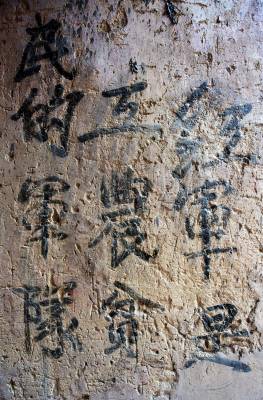 紅軍是
工農貧
民的軍隊